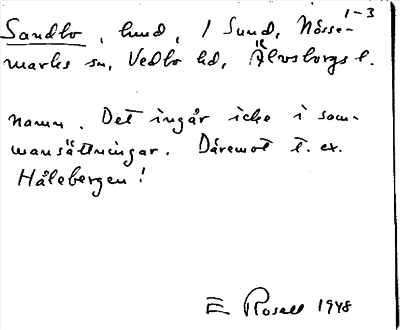 1-3
Sandbo, hmd, i Sund, Nösse-
marks sn, Vedbo hd, Älvsborgs l.
namn. Det ingår icke i sam-
mansättningar. Däremot t. ex.
Hålebergen!
E Rosell 1948